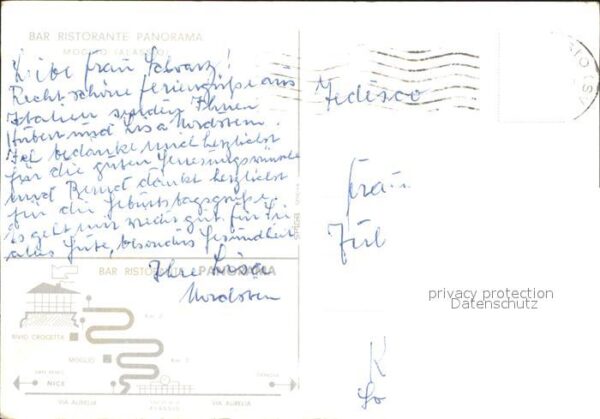 BAR RISTORANTE PANORAMA
MOGLIO (ALASSIO)
Liebe Frau Schwarz!
Recht schöne Feriengrüße aus
Italien senden Ihnen
Hubert und Lisa Nordsven.
Ich bedanke mich herzlichst
für die guten Genesungswünsche
und Bernd dankt herzlichst
für die Geburtstagsgrüße.
Es geht mir recht gut. Für Sie
alles Gute, besonders Gesundheit
Ihre Lisa
Nordsven
Tedesco
Frau
Lo
BAR RISTORANTE PANORAMA
KM. 2
BIVIO CROCETTA
MOGLIO
KM. 1
NICE
GENOVA
ALASSIO
VIA AURELIA
VIA AURELIA
privacy protection
Datenschutz